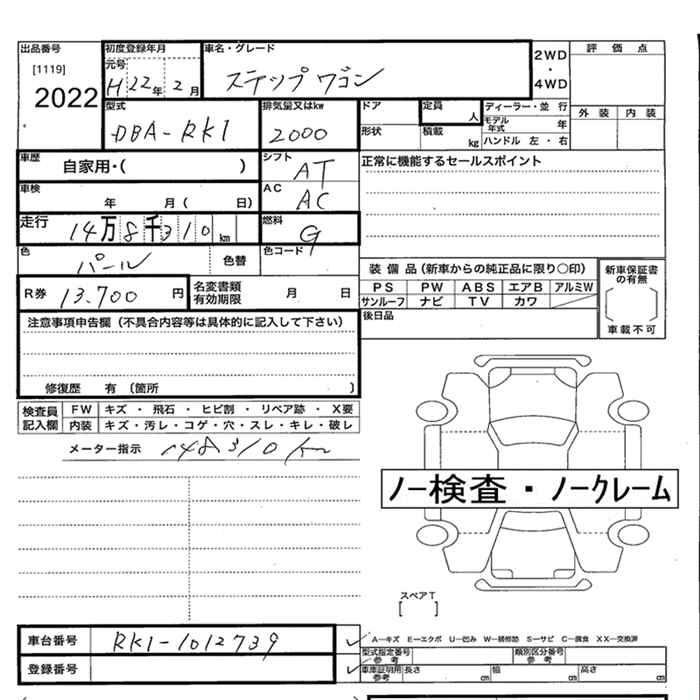 出品番号 初度登録年月 車名・グレード 2WD ・ 4WD 評価点
[1119] 元号
2022 H22年2月 ステップワゴン
型式 排気量又はkw ドア 定員 人 ディーラー・並行 外装 内装
DBA-RK1 2000 形状 積載 kg モデル年式 年
ハンドル 左・右
車歴 自家用・( ) シフト AT 正常に機能するセールスポイント
車検 年 月( 日) AC AC
走行 14万8千310km 燃料 G
色 パール 色替 色コード
装備品(新車からの純正品に限り○印) 新車保証書の有無
R券 13,700円 名変書類有効期限 月 日 PS PW ABS エアB アルミW
サンルーフ ナビ TV カワ
[ ] 車載不可
注意事項申告欄(不具合内容等は具体的に記入して下さい) 後日品
修復歴 有(箇所 )
検査員記入欄 FW キズ・飛石・ヒビ割・リペア跡・X要
内装 キズ・汚レ・コゲ・穴・スレ・キレ・破レ
メーター指示 148310km
ノー検査・ノークレーム
スペアT
[ ]
車台番号 RK1-1012739 A-キズ E-エクボ U-凹み W-補修跡 S-サビ C-腐食 XX-交換済
型式指定番号 参考 類別区分番号 参考
登録番号 車庫証明用参考 長さ cm 幅 cm 高さ cm